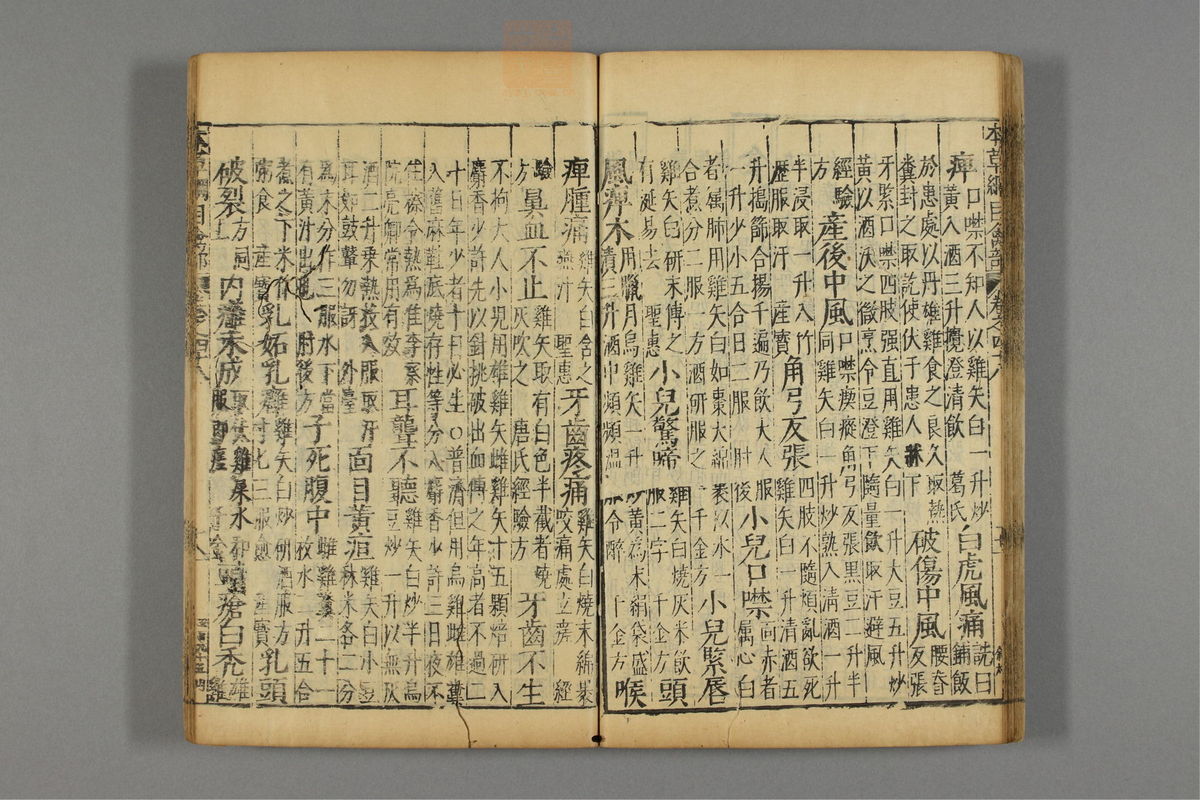 本草綱目禽部 卷之四十八
痺口噤不知人以雞矢白一升炒黃入酒三升攪澄清飲 葛氏 白虎風痛詵曰鋪飯
於患處以丹雄雞食之良久取熱糞封之取訖使伏于患人牀下 破傷中風腰脊反張
牙緊口噤四肢强直用雞矢白一升大豆五升炒黃以酒沃之微烹令豆澄下隨量飲取汗避風
經驗方 產後中風口噤瘈瘲角弓反張黑豆二升半同雞矢白一升炒熟入清酒一升
半浸取一升入竹瀝服取汗 產寶 角弓反張四肢不隨煩亂欲死雞矢白一升清酒五
升搗篩合揚千遍乃飲大人服一升少小五合日二服 肘後 小兒口噤面赤者屬心白
者屬肺用雞矢白如棗大綿裹以水一合煮分二服一方酒研服之 千金方 小兒緊唇
雞矢白研末傅之有涎易去 聖惠 小兒驚啼雞矢白燒灰米飲服二字 千金方 頭
風痺木用臘月烏雞矢一升炒黃為末絹袋盛漬三升酒中頻頻溫服令醉 千金方 喉
痺腫痛雞矢白含之嚥汁 聖惠 牙齒疼痛雞矢白燒末綿裹咬痛處立瘥 經
驗方 鼻血不止雞矢取有白色半截者燒灰吹之 唐氏經驗方 牙齒不生
不拘大人小兒用雄雞矢雌雞矢十五顆焙研入麝香少許先以針挑破出血傅之年高者不過二
十日年少者十日必生○普濟但用烏雞雌雄糞入舊麻鞋底燒存性等分入麝香少許三日夜不
住擦令熱為佳李察院亮卿常用有效 耳聾不聽雞矢白炒半升烏豆炒一升以無灰
酒二升乘熱投入服取汗耳如鼓鼙勿訝 外臺 面目黃疸雞矢白小豆秫米各二分
為末分作三服水下當有黃汁出也 肘後方 子死腹中雌雞糞二十一枚水二升五合
煮之下米作粥食 產寶 乳妬乳癰雞矢白炒研酒服方寸匕三服愈 產寶 乳頭
破裂方同上 內癰未成取伏雞屎水和服即瘥 千金 頭瘡白禿雄雞
本草綱目禽部 卷之四十八